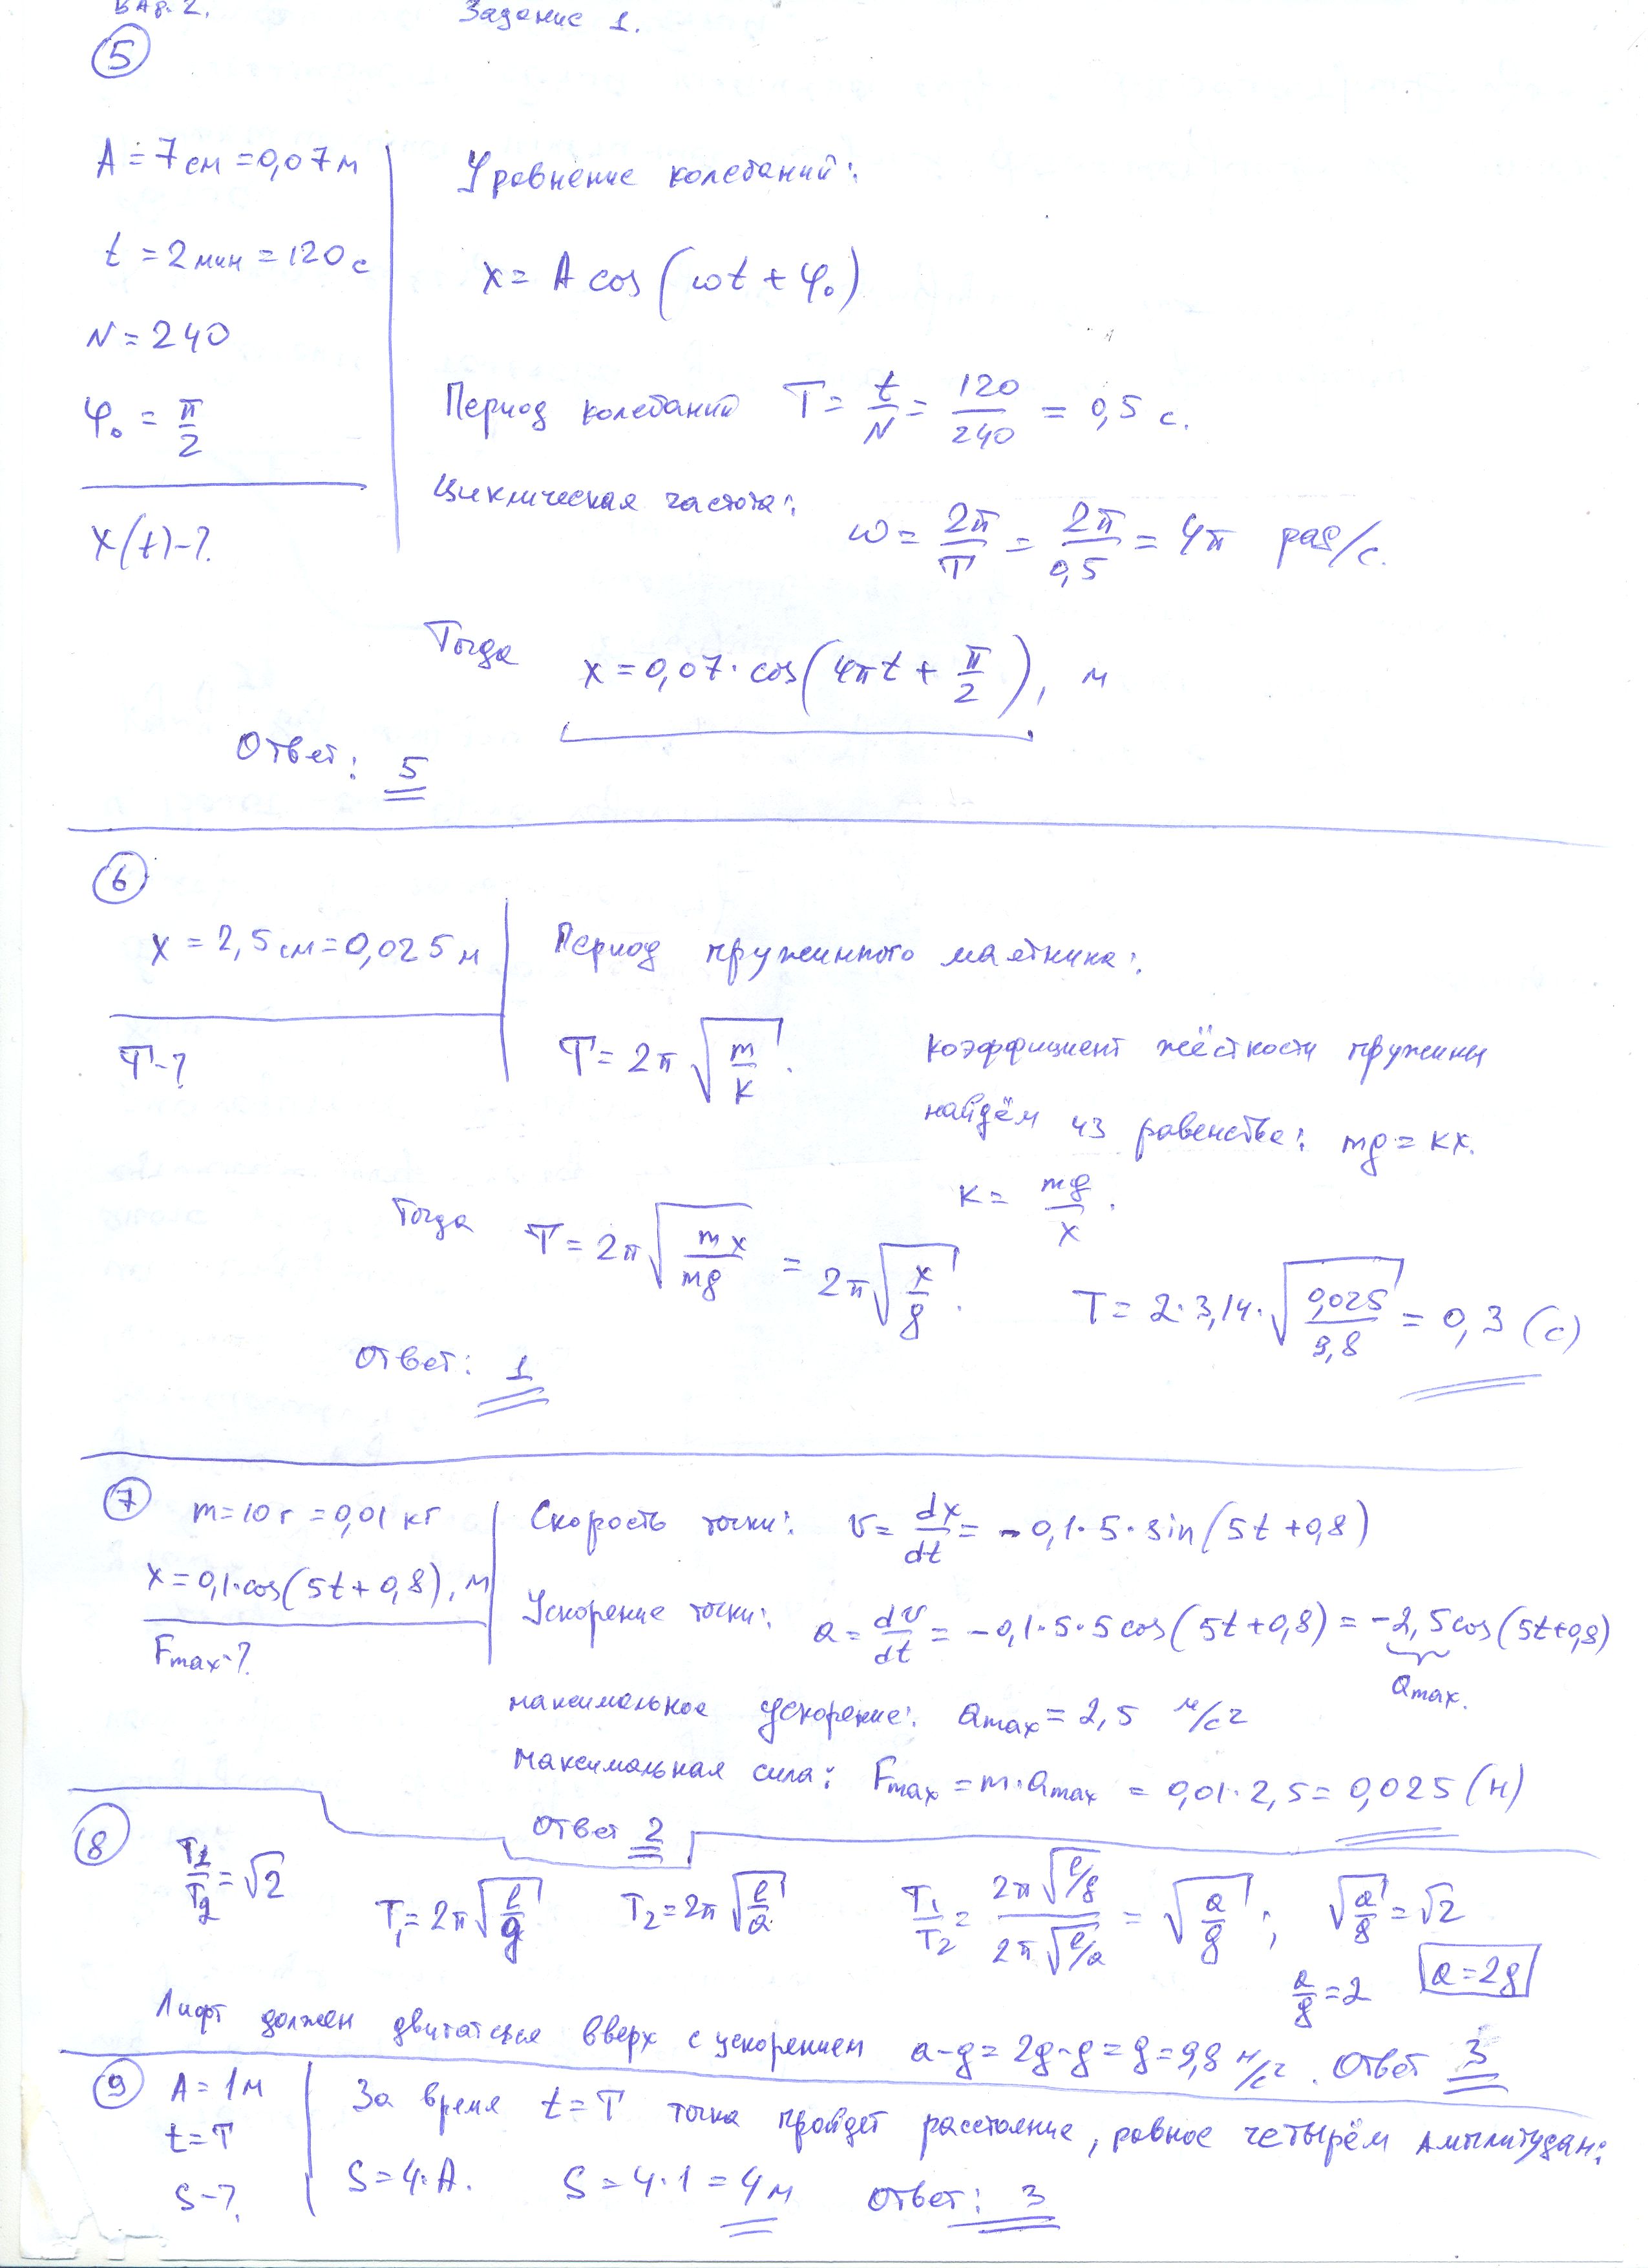 Вар. 2.   Задание 1.
5
A = 7 см = 0,07 м
t = 2 мин = 120 с
N = 240
φ₀ = π/2
X(t) - ?
Уравнение колебаний:
x = A cos(ωt + φ₀)
Период колебаний T = t/N = 120/240 = 0,5 с.
Циклическая частота: ω = 2π/T = 2π/0,5 = 4π рад/с.
Тогда x = 0,07 · cos(4πt + π/2), м
Ответ: 5
6
x = 2,5 см = 0,025 м
T - ?
Период пружинного маятника:
T = 2π√(m/k).
Коэффициент жёсткости пружины
найдём из равенства: mg = kx.
k = mg/x.
Тогда T = 2π√(mx/mg) = 2π√(x/g).   T = 2·3,14·√(0,025/9,8) = 0,3 (с)
Ответ: 1
7
m = 10 г = 0,01 кг
x = 0,1·cos(5t + 0,8), м
Fmax - ?
Скорость точки: v = dx/dt = -0,1·5·sin(5t + 0,8)
Ускорение точки: a = dv/dt = -0,1·5·5cos(5t + 0,8) = -2,5cos(5t + 0,8)
amax.
максимальное ускорение: amax = 2,5 м/с²
максимальная сила: Fmax = m·amax = 0,01·2,5 = 0,025 (н)
Ответ 2
8
T₁/T₂ = √2   T₁ = 2π√(l/g)   T₂ = 2π√(l/a)   T₁/T₂ = 2π√(l/g) / 2π√(l/a) = √(a/g);   √(a/g) = √2
a/g = 2   a = 2g
Лифт должен двигаться вверх с ускорением a-g = 2g-g = g = 9,8 м/с². Ответ 3
9
A = 1 м
t = T
S - ?
За время t = T точка пройдет расстояние, равное четырём амплитудам:
S = 4·A.   S = 4·1 = 4 м   Ответ: 3